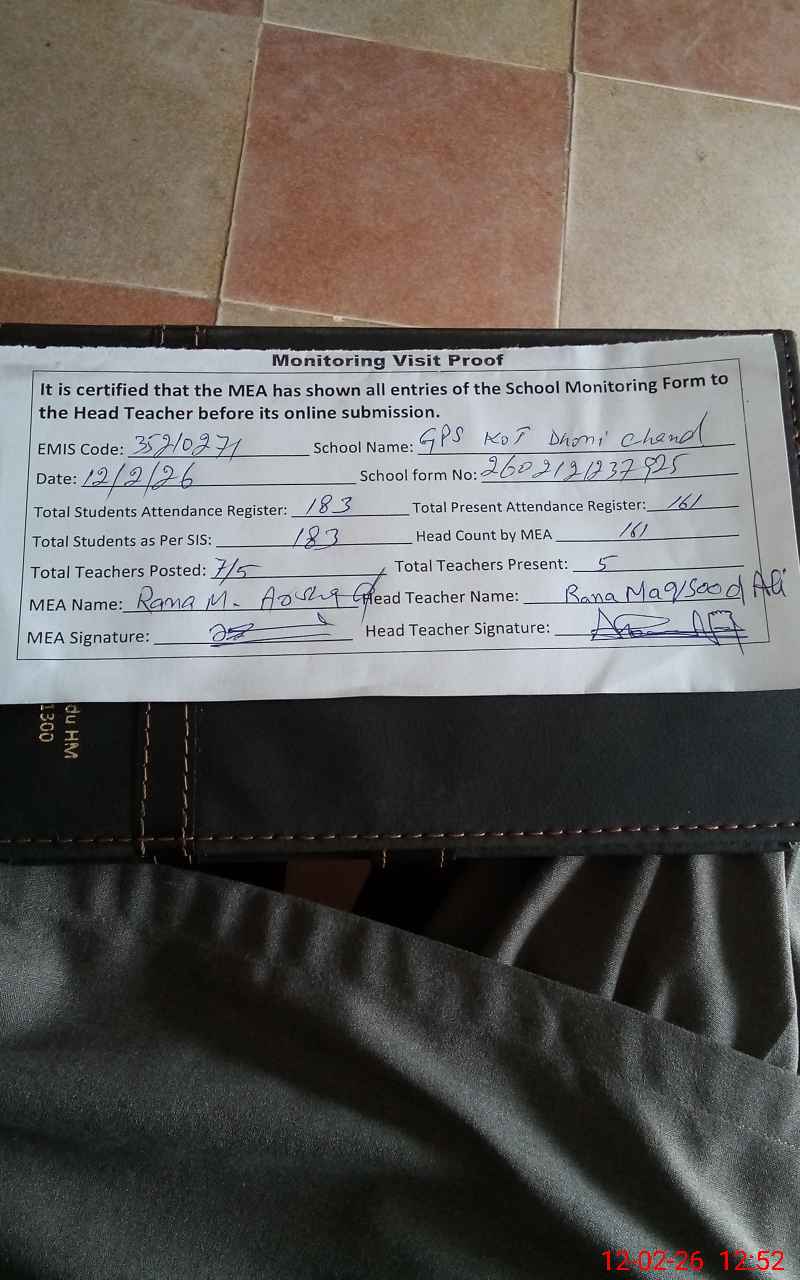 Monitoring Visit Proof
It is certified that the MEA has shown all entries of the School Monitoring Form to
the Head Teacher before its online submission.
EMIS Code: 35210271 School Name: GPS KOT Dhoni Chand
Date: 12/2/26 School form No: 2602121237925
Total Students Attendance Register: 183 Total Present Attendance Register: 161
Total Students as Per SIS: 183 Head Count by MEA 161
Total Teachers Posted: 7/5 Total Teachers Present: 5
MEA Name: Rana M. Head Teacher Name: Rana Maqsood Ali
MEA Signature: Head Teacher Signature:
du HM
1300
12-02-26 12:52